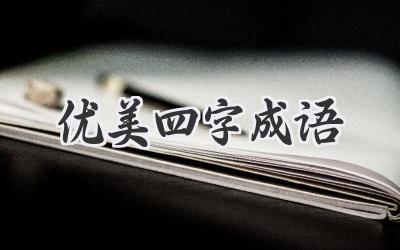 优美四字成语